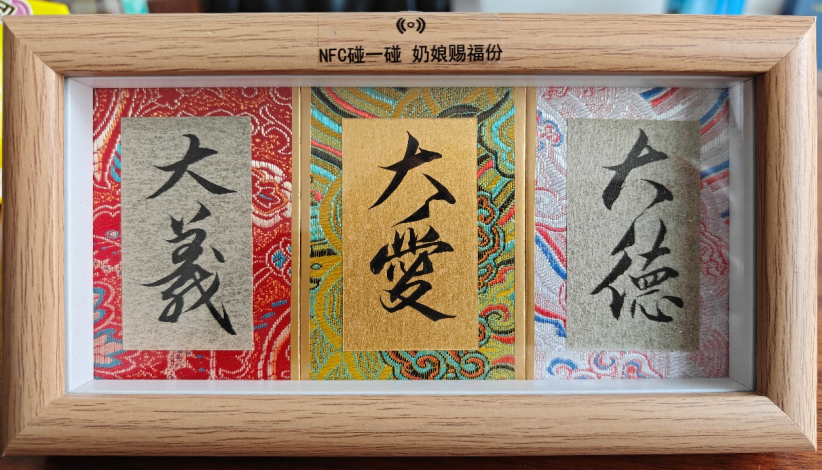 NFC碰一碰 奶娘赐福份
大義
大愛
大德